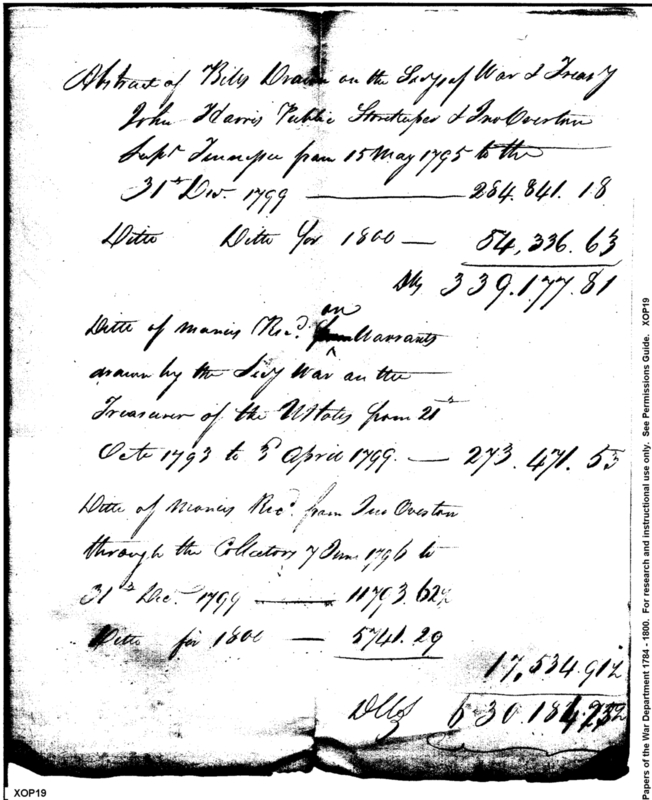 Abstract of Bills Drawn on the Secys of War & Treasy
John Harris Public Storekeeper & Jno Overton
Supr Tennessee from 15 May 1795 to the
31st Decr. 1799 — 284.841.18
Ditto Ditto for 1800 — 54,336.63
Dlls 339.177.81
on
Ditto of monies Recd. from Warrants
drawn by the Secy War on the
Treasurer of the UStates from 21st
Octr 1793 to 3d April 1799. — 273.471.53
Ditto of monies Recd from Jno Overton
through the Collectors 7 June 1796 to
31st Decr. 1799 — 11793.62½
Ditto for 1800 — 5741.29
17,534.91½
Dlls 630.184.23½
XOP19
Papers of the War Department 1784 - 1800. For research and instructional use only. See Permissions Guide. XOP19